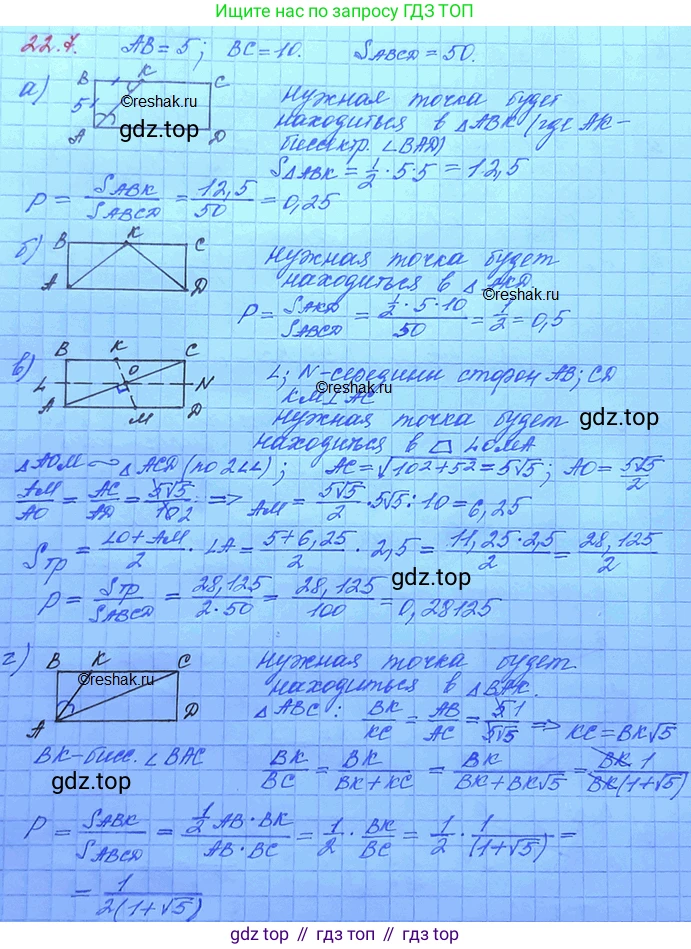 Ищите нас в поиске ГДЗ ТОП
22.7. AB = 5; BC = 10. SABCD = 50.
а) B K C
5 A D
©reshak.ru
gdz.top
нужная точка будет
находиться в △ABK (где AK –
биссектр. ∠BAD)
S△ABK = 1/2 · 5 · 5 = 12,5
P = SABK/SABCD = 12,5/50 = 0,25
б) B K C
A D
нужная точка будет
находиться в △AKD.
©reshak.ru
P = SAKD/SABCD = (1/2 · 5 · 10)/50 = 1/2 = 0,5
в) B K C
L O N
A M D
©reshak.ru
L; N – середины сторон AB; CD
KM ⊥ AC
нужная точка будет
gdz.top
находиться в ⏢ LOMA
△AOM ~ △ACD (по 2∠∠); AC = √102+52 = 5√5; AO = 5√5/2
AM/AO = AC/AD = 5√5/102 => AM = 5√5/2 · 5√5 : 10 = 6,25
Sтр = (LO + AM)/2 · LA = (5 + 6,25)/2 · 2,5 = 11,25 · 2,5/2 = 28,125/2
P = Sтр/SABCD = 28,125/2 · 50 = 28,125/100 = 0,28125
gdz.top
г) B K C
A D
©reshak.ru
нужная точка будет
находиться в △BAK.
△ABC: BK/KC = AB/AC = 51/5√5 => KC = BK√5
BK – бисс. ∠BAC
gdz.top
BK/BC = BK/(BK + KC) = BK/(BK + BK√5) = BK 1/BK(1+√5)
P = SABK/SABCD = (1/2 AB · BK)/(AB · BC) = 1/2 · BK/BC = 1/2 · 1/(1+√5) =
= 1/2(1+√5)
gdz.top // гдз топ // gdz.top // гдз топ // gdz.top